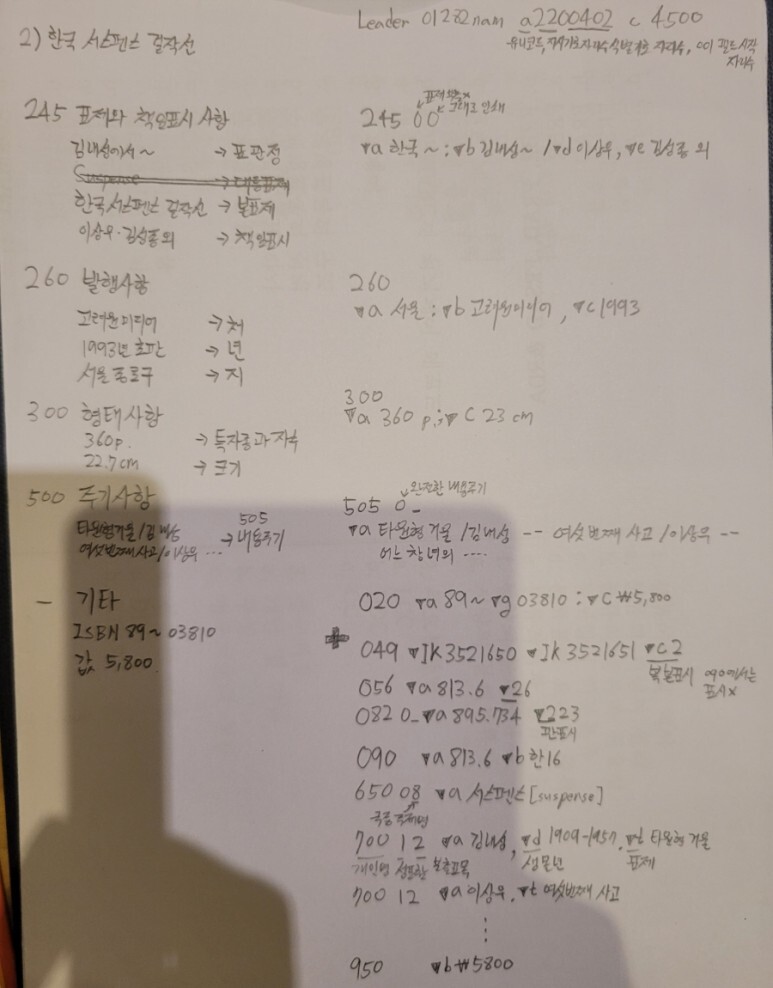 Leader 01282nam a2200402 c 4500
유니코드, 지시기호자리수, 식별기호 자리수, 001 필드시작
자리수
2) 한국 서스펜스 걸작선
245 표제와 책임표시 사항
김내성에서~ → 표판정
Suspense → 대등표제
한국 서스펜스 걸작선 → 본표제
이상우·김성종 의 → 책임표시
그대로 인쇄
245 00
▼a 한국 ~ ; ▼b 김내성~ / ▼d 이상우, ▼e 김성종 외
260 발행사항
고려원미디어 → 처
1993년 초판 → 년
서울 종로구 → 지
260
▼a 서울 ; ▼b 고려원미디어, ▼c 1993
300 형태사항
360p. → 독자종과 자수
22.7cm → 크기
300
▼a 360 p. ; ▼c 23 cm
500 주기사항
타원형 거울 / 김내성
여섯번째 사고 / 이상우 ...
505
→ 내용주기
완전한 내용주기
505 0_
▼a 타원형 거울 / 김내성 -- 여섯 번째 사고 / 이상우 --
어느 창녀의 ....
- 기타
ISBN 89~ 03810
값 5,800
020 ▼a 89~ ▼g 03810 : ▼c ₩5,800
049 ▼IK3521650 ▼IK3521651 ▼c2
복본표시 090에서는
표시x
056 ▼a 813.6 ▼26
082 0_ ▼a 895.734 ▼223
판표시
090 ▼a 813.6 ▼b 한16
650 08 ▼a 서스펜스 [suspense]
700 12 ▼a 김내성, ▼d 1909-1957. ▼t 타원형 거울
개인명 생몰년 표제
700 12 ▼a 이상우, ▼t 여섯번째 사고
⋮
950 ▼b ₩5800